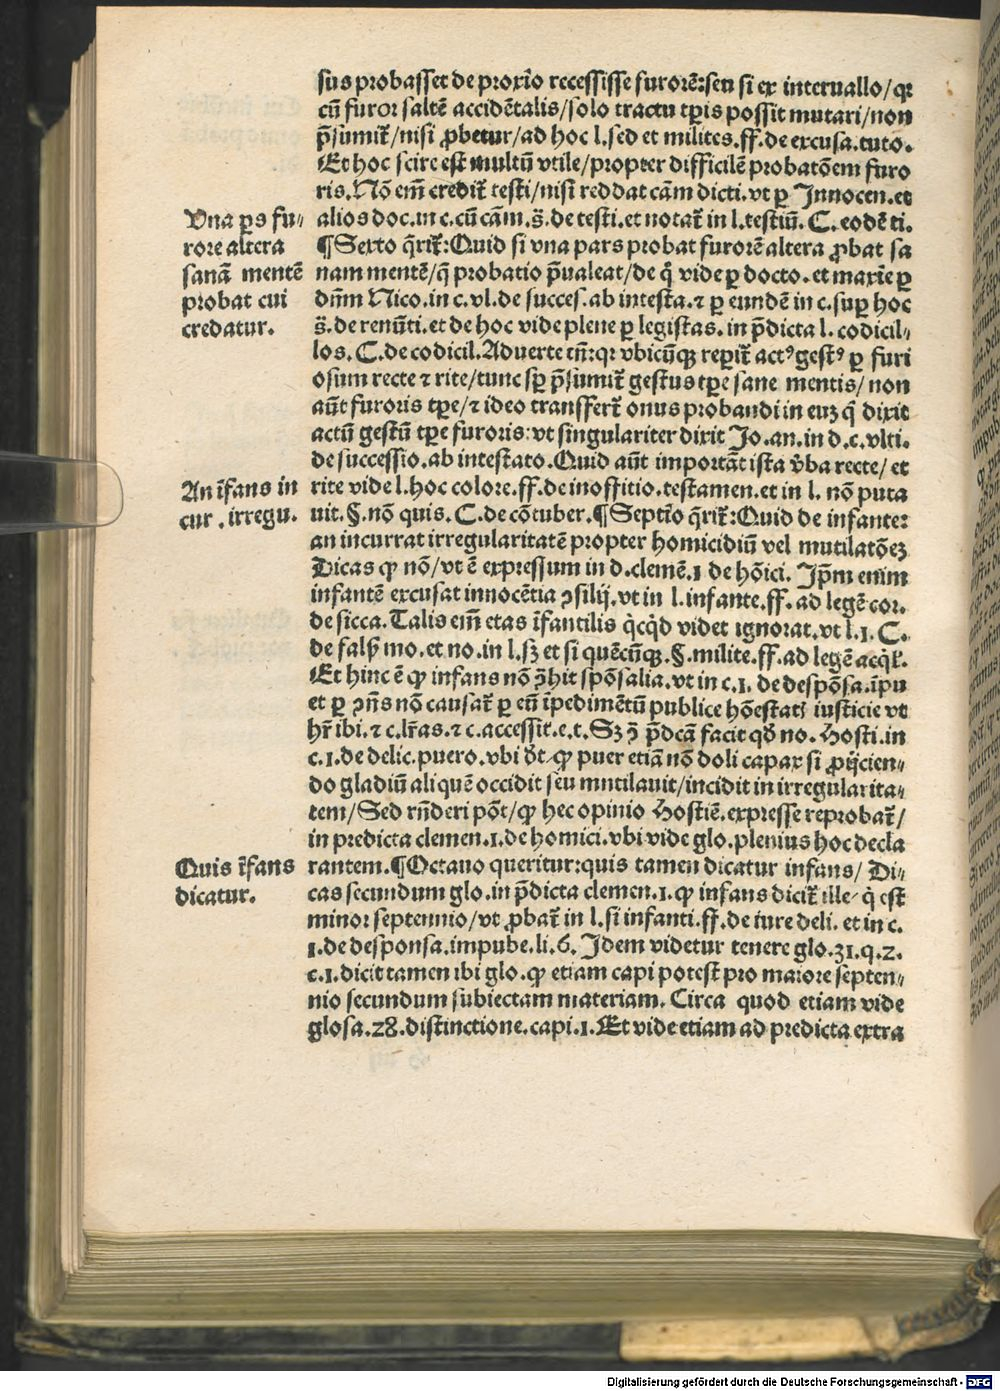 sus probasset de proxĩo recessisse furorẽ:seu si ex interuallo/qꝛ
cũ furor saltẽ accidẽtalis/solo tractu tꝑis possit mutari/non
p̃sumit̃/nisi ꝓbetur/ad hoc l.sed et milites.ff.de excusa.tuto.
Et hoc scire est multũ vtile/propter difficilẽ probatõem furo
ris.Nõ em̃ credit̃ testi/nisi reddat cãm dicti.vt ꝑ Innocen.et
alios doc.in c.cũ cãm.s̃.de testi.et notat̃ in l.testiũ. C. eodẽ ti.
Una ꝑs fu-
rore altera
sanã mentẽ
probat cui
credatur.
¶Sexto q̃rit̃:Quid si vna pars probat furorẽ altera ꝓbat sa
nam mentẽ/q̃ probatio p̃ualeat/de q̃ vide ꝑ docto.et maxie ꝑ
dñm Nico.in c.vl.de succes.ab intesta.⁊ ꝑ eundẽ in c.suꝑ hoc
s̃.de renũti.et de hoc vide plene ꝑ legistas.in p̃dicta l.codicil-
los.C.de codicil.Aduerte tñ:qꝛ vbicũqꝫ reꝑit̃ actꝰgestꝰ ꝑ furi
osum recte ⁊ rite/tunc sꝑ p̃sumit̃ gestus tꝑe sane mentis/non
aũt furoris tꝑe/⁊ ideo transfert̃ onus probandi in euꝫ q̃ dixit
actũ gestũ tꝑe furoris:vt singulariter dixit Jo.an.in d.c.vlti.
de successio.ab intestato.Quid aũt importãt ista v̾ba recte/et
An ĩfans in
cur.irregu.
rite vide l.hoc colore.ff.de inoffitio.testamen.et in l. nõ puta
uit.§.nõ quis. C.de cõtuber.¶Septĩo q̃rit̃:Quid de infante:
an incurrat irregularitatẽ propter homicidiũ vel mutilatõeꝫ
Dicas ꝙ nõ/vt ẽ expressum in d.clemẽ.1 de hõici. Ip̃m enim
infantẽ excusat innocẽtia ꝯsilij.vt in l.infante.ff.ad legẽ cor.
de sicca.Talis em̃ etas ĩfantilis q̃cq̃d videt ignorat.vt l.1. C.
de fals̃ mo.et no.in l.sꝫ et si quẽcũqꝫ.§.milite.ff.ad legẽ acq̃l̃.
Et hinc ẽ ꝙ infans nõ ꝯ̃hit spõsalia.vt in c.1. de despõsa.ĩpu
et ꝑ ꝯñs nõ causat̃ ꝑ eũ ĩpedimẽtũ publice hõestati iusticie vt
hr̃ ibi.⁊ c.lr̃as.⁊ c.accessit.e.t.Sꝫ ꝯ̃ p̃dcã facit qd̃ no.Hosti.in
c.1.de delic.puero.vbi dt̃.ꝙ puer etiã nõ doli capax si ꝓijcien-
do gladiũ aliquẽ occidit seu mutilauit/incidit in irregularita-
tem/Sed rñderi põt/ꝙ hec opinio Hostiẽ.expresse reprobat̃/
in predicta clemen.1.de homici.vbi vide glo.plenius hoc decla
Quis ĩfans
dicatur.
rantem.¶Octauo queritur:quis tamen dicatur infans/Di-
cas secundum glo.in p̃dicta clemen.1.ꝙ infans dicit̃ ille/q̃ est
minor septennio/vt ꝓbat̃ in l.si infanti.ff.de iure deli. et in c.
1.de desponsa.impube.li.6. Idem videtur tenere glo.31.q.2.
c.1.dicit tamen ibi glo.ꝙ etiam capi potest pro maiore septen-
nio secundum subiectam materiam. Circa quod etiam vide
glosa.28.distinctione.capi.1.Et vide etiam ad predicta extra
Digitalisierung gefördert durch die Deutsche Forschungsgemeinschaft - DFG